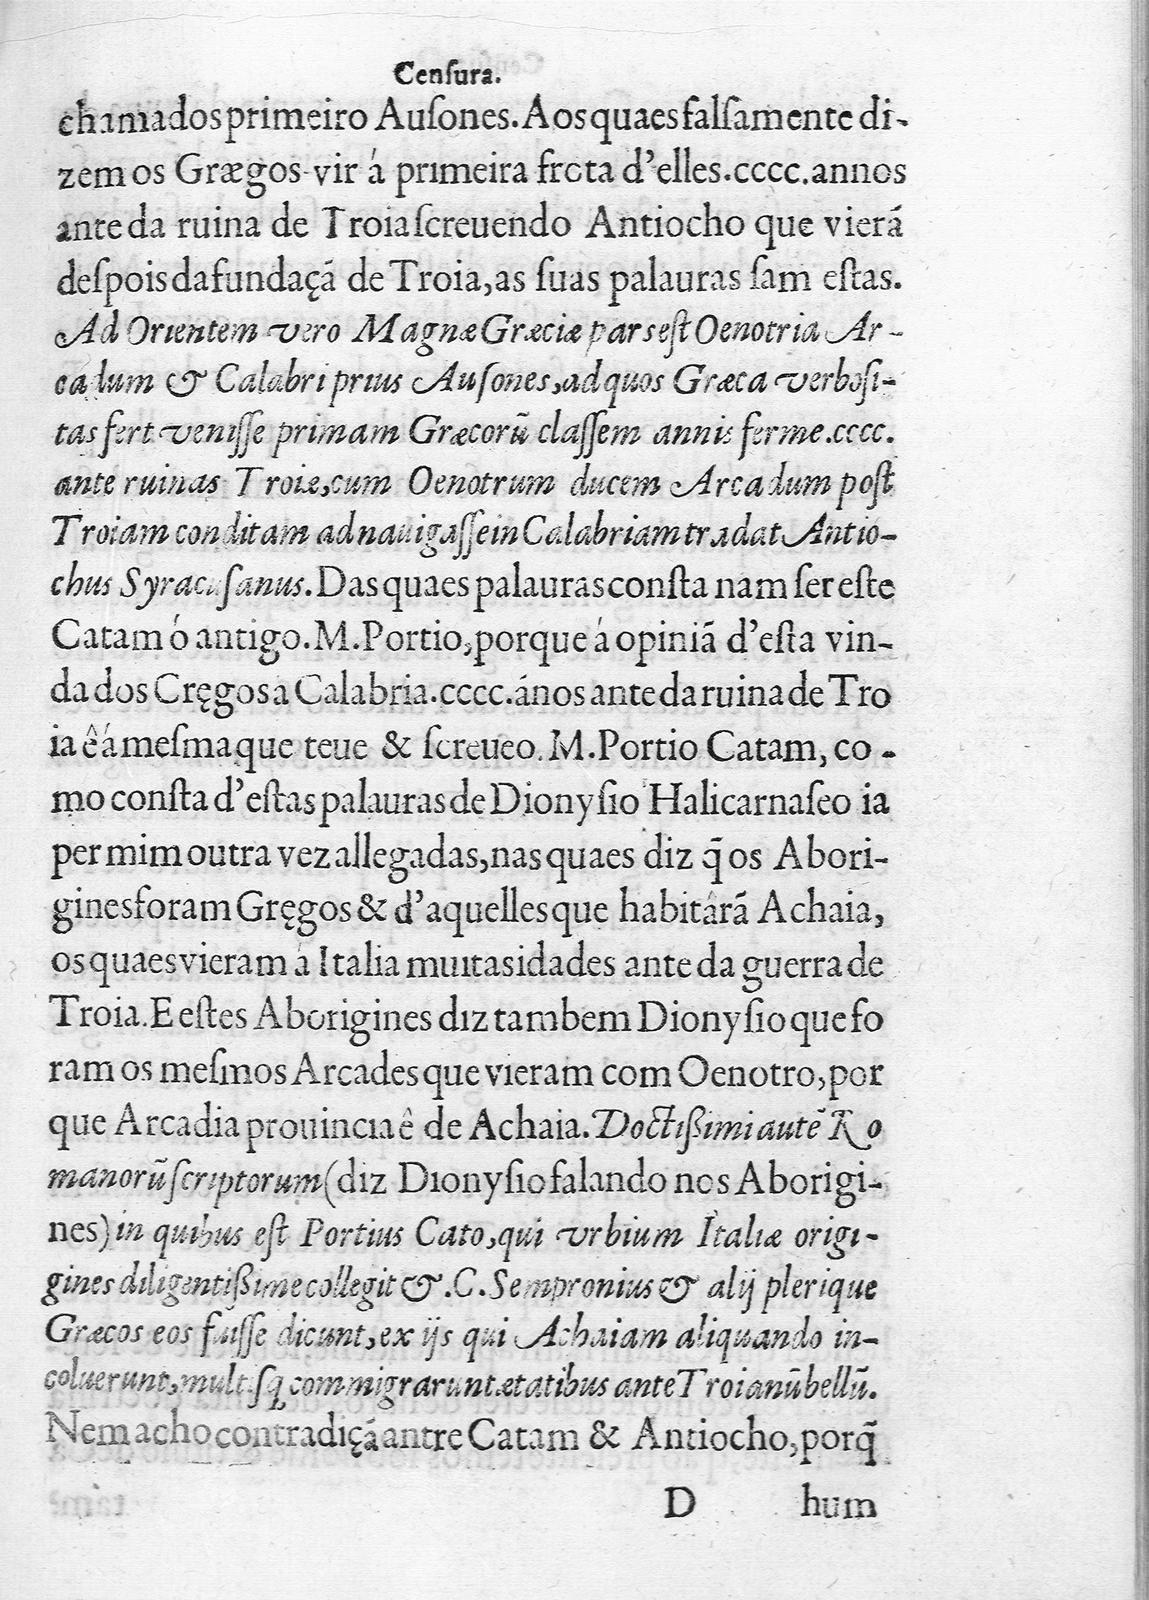 Cenſura.
chamados primeiro Auſones. Aos quaes falſamente di-
zem os Græegos vir á primeira frota d'elles.cccc.annos
ante da ruina de Troia ſcreuendo Antiocho que vierã
deſpois da fundaçã de Troia, as ſuas palauras ſam eſtas.
Ad Orientem vero Magnæ Græciæ pars eſt Oenotria Ar-
cadum & Calabri prius Auſones, ad quos Græca verboſi-
tas fert veniſſe primam Græcorũ claſſem annis ferme.cccc.
ante ruinas Troiæ, cum Oenotrum ducem Arcadum poſt
Troiam conditam adnauigaſſe in Calabriam tradat Antio-
chus Syracuſanus. Das quaes palauras conſta nam ſer eſte
Catam ó antigo. M. Portio, porque á opiniã d'eſta vin-
da dos Cręgos a Calabria.cccc.ános ante da ruina de Tro
ia ê á meſma que teue & ſcreueo. M. Portio Catam, co-
mo conſta d'eſtas palauras de Dionyſio Halicarnaſeo ia
per mim outra vez allegadas, nas quaes diz q̃ os Abori-
gines foram Gręgos & d'aquelles que habitârã Achaia,
os quaes vieram à Italia muitas idades ante da guerra de
Troia. E eſtes Aborigines diz tambem Dionyſio que fo
ram os meſmos Arcades que vieram com Oenotro, por
que Arcadia prouincia ê de Achaia. Doctißimi autẽ Ro
manorũ ſcriptorum (diz Dionyſio falando nos Aborigi-
nes) in quibus eſt Portius Cato, qui vrbium Italiæ origi-
gines diligentißime collegit &.C. Sempronius & alij plerique
Græcos eos fuiſſe dicunt, ex ijs qui Achaiam aliquando in-
coluerunt, multiſq; commigrarunt ætatibus ante Troianũ bellũ.
Nem acho contradiçã antre Catam & Antiocho, porq̃
D hum